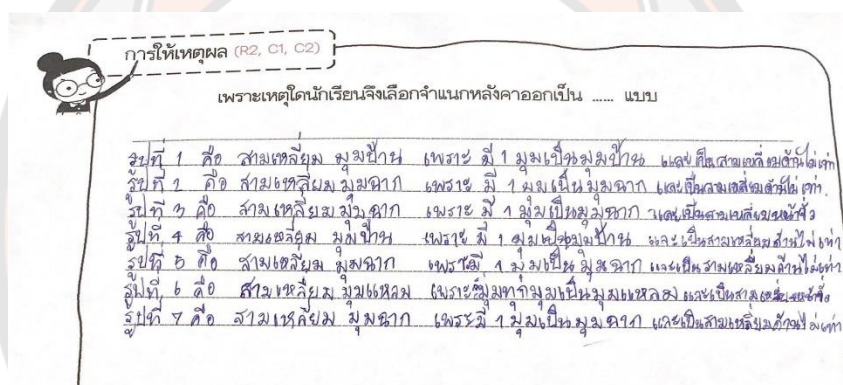 การให้เหตุผล (R2, C1, C2)
เพราะเหตุใดนักเรียนจึงเลือกจำแนกหลังคาออกเป็น ...... แบบ
รูปที่ 1 คือ สามเหลี่ยม มุมป้าน เพราะ มี 1 มุมเป็นมุมป้าน และเป็นสามเหลี่ยมด้านไม่เท่า
รูปที่ 2 คือ สามเหลี่ยมมุมฉาก เพราะ มี 1 มุมเป็นมุมฉาก และเป็นสามเหลี่ยมด้านไม่เท่า.
รูปที่ 3 คือ สามเหลี่ยมมุมฉาก เพราะ มี 1 มุมเป็นมุมฉาก และเป็นสามเหลี่ยมหน้าจั่ว
รูปที่ 4 คือ สามเหลี่ยม มุมป้าน เพราะ มี 1 มุมเป็นมุมป้าน และเป็นสามเหลี่ยมด้านไม่เท่า
รูปที่ 5 คือ สามเหลี่ยม มุมฉาก เพราะมี 1 มุมเป็นมุมฉาก และเป็นสามเหลี่ยมด้านไม่เท่า
รูปที่ 6 คือ สามเหลี่ยม มุมแหลม เพราะมุมทุกมุมเป็นมุมแหลม และเป็นสามเหลี่ยมหน้าจั่ว
รูปที่ 7 คือ สามเหลี่ยม มุมฉาก เพราะมี 1 มุมเป็นมุมฉาก และเป็นสามเหลี่ยมด้านไม่เท่า